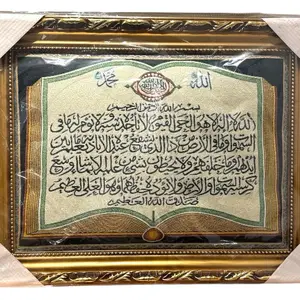 الله محمد
بسم الله الرحمن الرحيم
الله لا إله إلا هو الحي القيوم لا تأخذه سنة ولا نوم له ما في
السموات وما في الأرض من ذا الذي يشفع عنده إلا بإذنه يعلم ما بين
أيديهم وما خلفهم ولا يحيطون بشيء من علمه إلا بما شاء وسع
كرسيه السموات والأرض ولا يؤده حفظهما وهو العلي العظيم
صدق الله العظيم